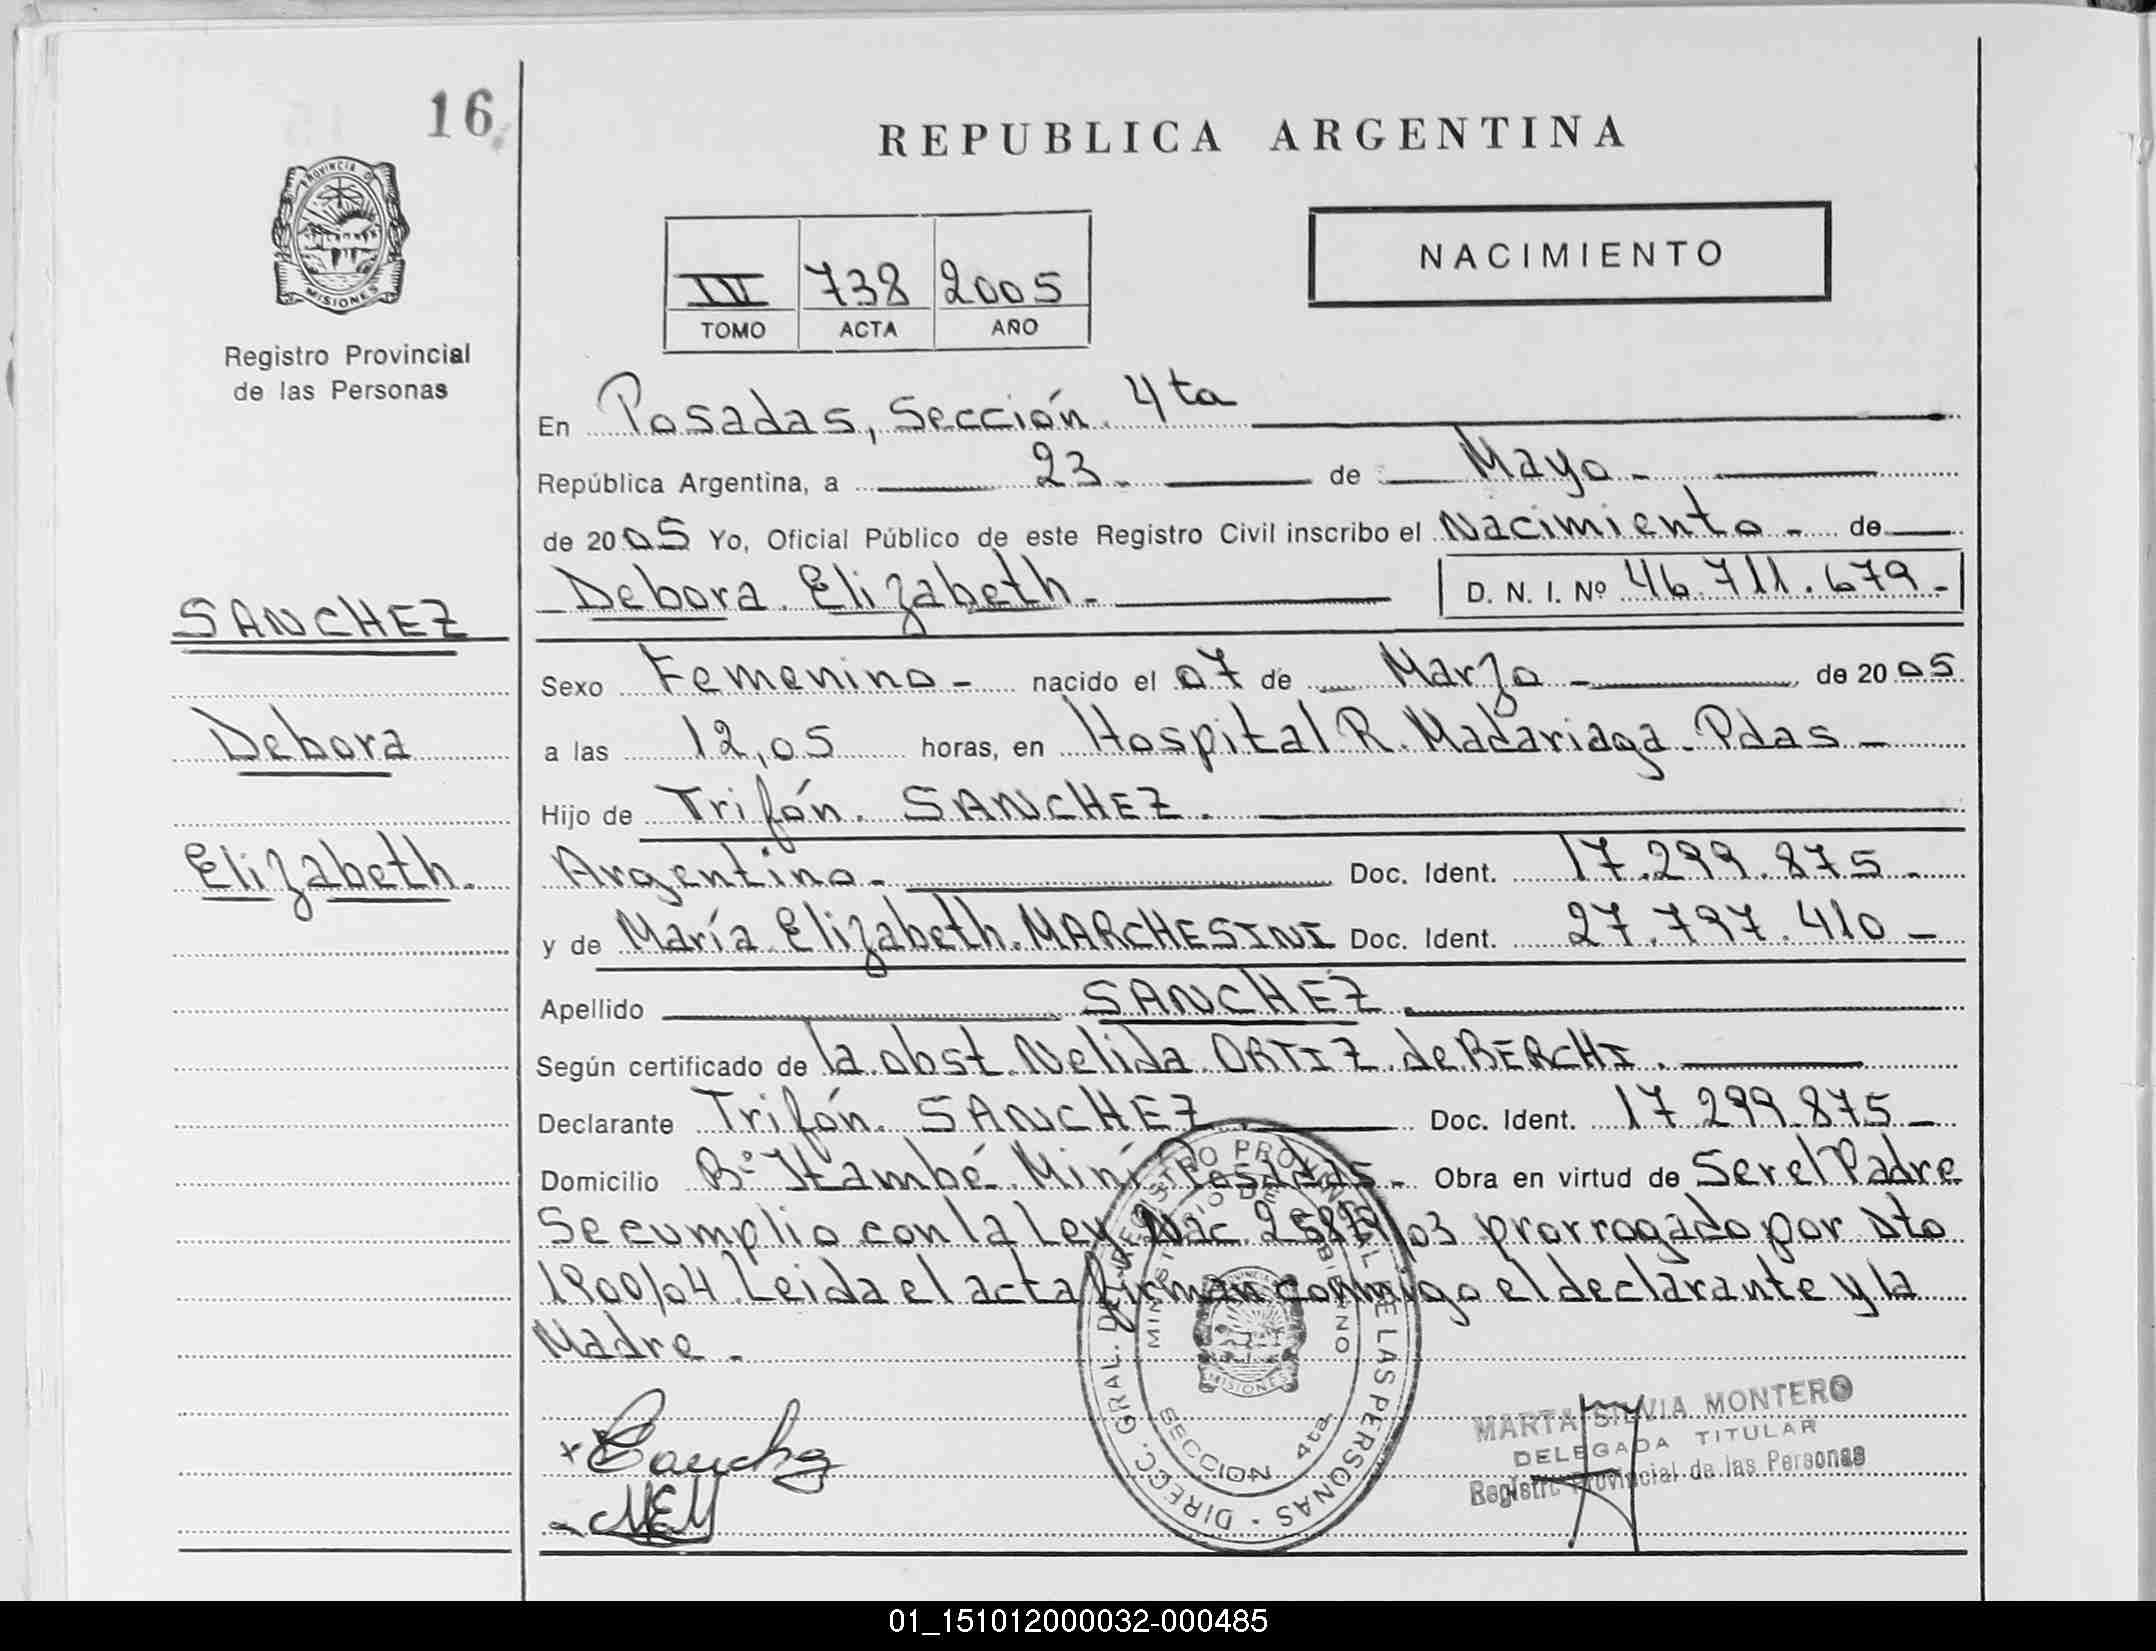 16
PROVINCIA D
MISIONES
Registro Provincial
de las Personas
SANCHEZ
Debora
Elizabeth.
REPUBLICA ARGENTINA
NACIMIENTO
738 2005
TOMO ACTA AÑO
En Posadas, Sección 4ta
República Argentina, a 23 - de Mayo -
de 2005 Yo, Oficial Público de este Registro Civil inscribo el Nacimiento - de
Debora Elizabeth - D. N. I. Nº 46.711.679-
Sexo Femenino - nacido el 07 de Marzo - de 2005
a las 12,05 horas, en Hospital R. Madariaga - Pdas -
Hijo de Trifón. SANCHEZ.
Argentino - Doc. Ident. 17.299.875 -
y de María Elizabeth. MARCHESINI Doc. Ident. 27.797.410 -
Apellido SANCHEZ.
Según certificado de la obst. Nelida ORTIZ de BERCHI.
Declarante Trifón. SANCHEZ. Doc. Ident. 17.299.875 -
Domicilio Bº Itambé Miní Posadas - Obra en virtud de Ser el Padre
Se cumplio con la Ley Nac. /03 prorrogado por Dto
1900/04. Leida el acta firman conmigo el declarante y la
Madre -
DIRECC. GRAL. DEL REGISTRO PROVINCIAL DE LAS PERSONAS
MINISTERIO DE GOBIERNO
MISIONES
SECCION 4ta
MEM
MARTA SILVIA MONTERO
DELEGADA TITULAR
Registro Provincial de las Personas
01_151012000032-000485